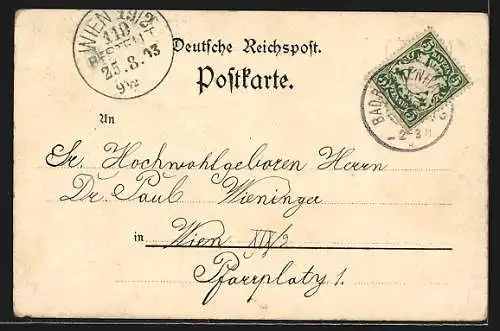 WIEN 19/2
119
BESTELLT
25.8.03
9½
Deutsche Reichspost.
Postkarte.
BAD
2-3 N
5
5
An
Sr. Hochwohlgeboren Herrn
Dr. Paul Wieninger
in Wien XIX/2
Pfarrplatz 1.